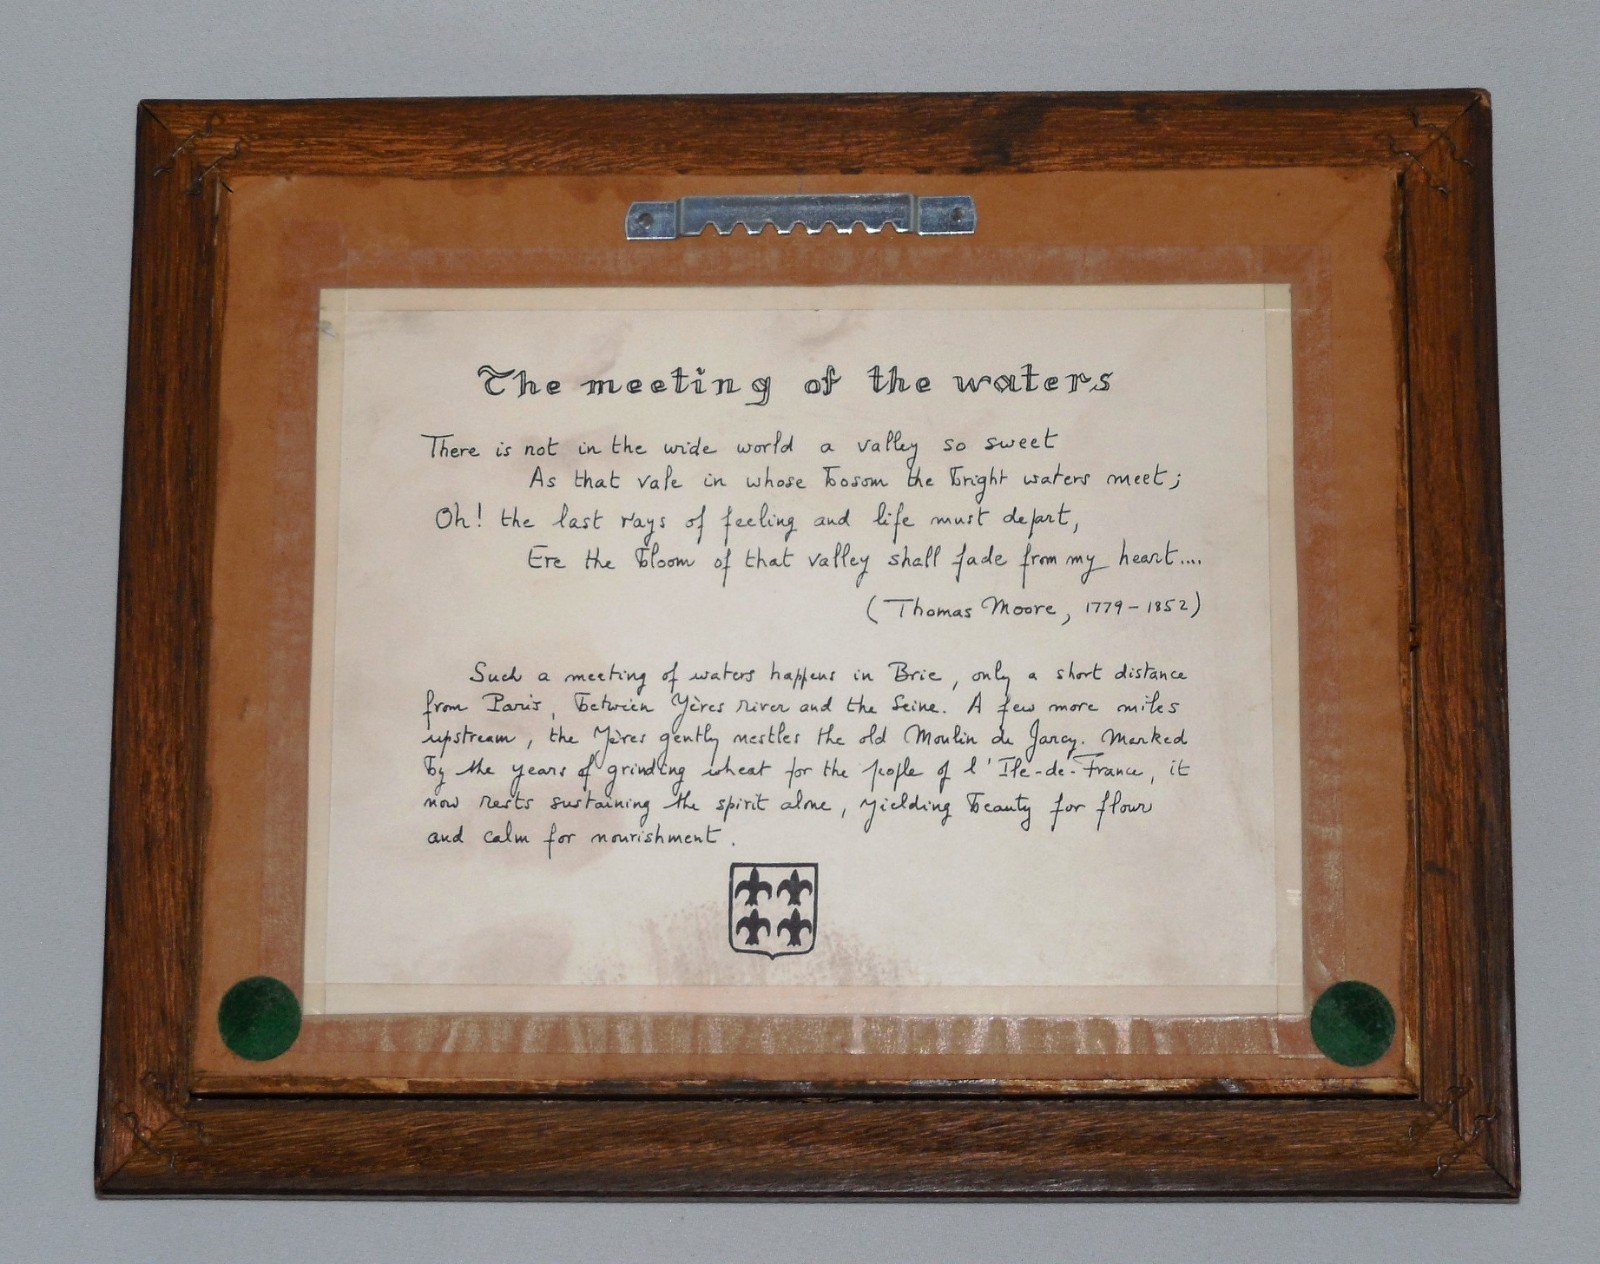 The meeting of the waters
There is not in the wide world a valley so sweet
As that vale in whose bosom the bright waters meet;
Oh! the last rays of feeling and life must depart,
Ere the bloom of that valley shall fade from my heart....
(Thomas Moore, 1779-1852)
Such a meeting of waters happens in Brie, only a short distance
from Paris, between Yères river and the Seine. A few more miles
upstream, the Yères gently nestles the old Moulin de Jarcy. Marked
by the years of grinding wheat for the people of l'Ile-de-France, it
now rests sustaining the spirit alone, yielding beauty for flour
and calm for nourishment.